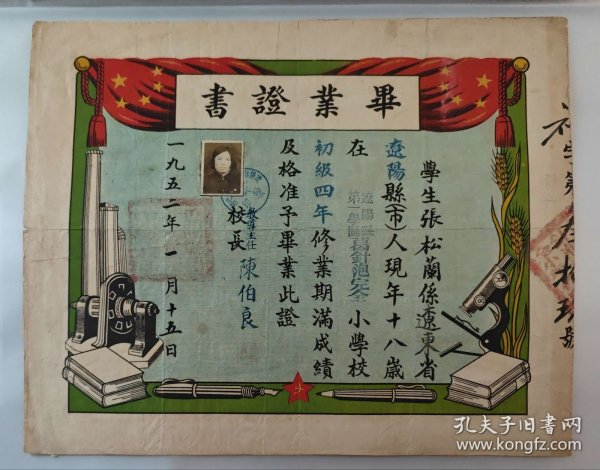 畢業證書
學生張松蘭係遼東省
遼陽縣(市)人現年十八歲
在遼陽縣第一學區葛針泡完全小學校
初級四年修業期滿成績
及格准予畢業此證
教導主任
校長 陳伯良
一九五二年一月十五日
孔夫子旧书网
www.kongfz.com